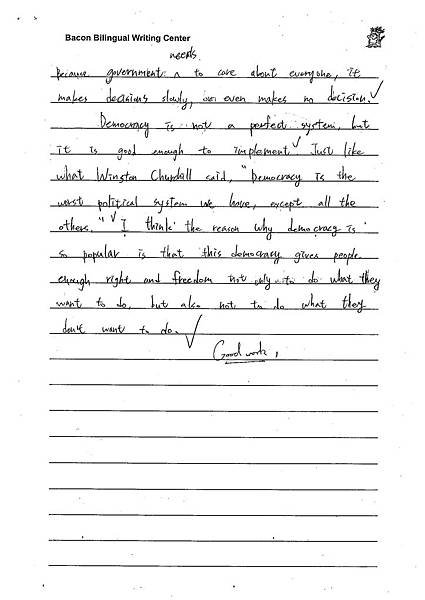 Bacon Bilingual Writing Center
needs
Because government ^ to care about everyone, it
makes decisions slowly, or even makes no decision.
Democracy is not a perfect system, but
it is good enough to implement. Just like
what Winston Churchill said, "Democracy is the
worst political system we have, except all the
others." I think the reason why democracy is
so popular is that this democracy gives people
enough right and freedom not only to do what they
want to do, but also not to do what they
don't want to do.
Good work,